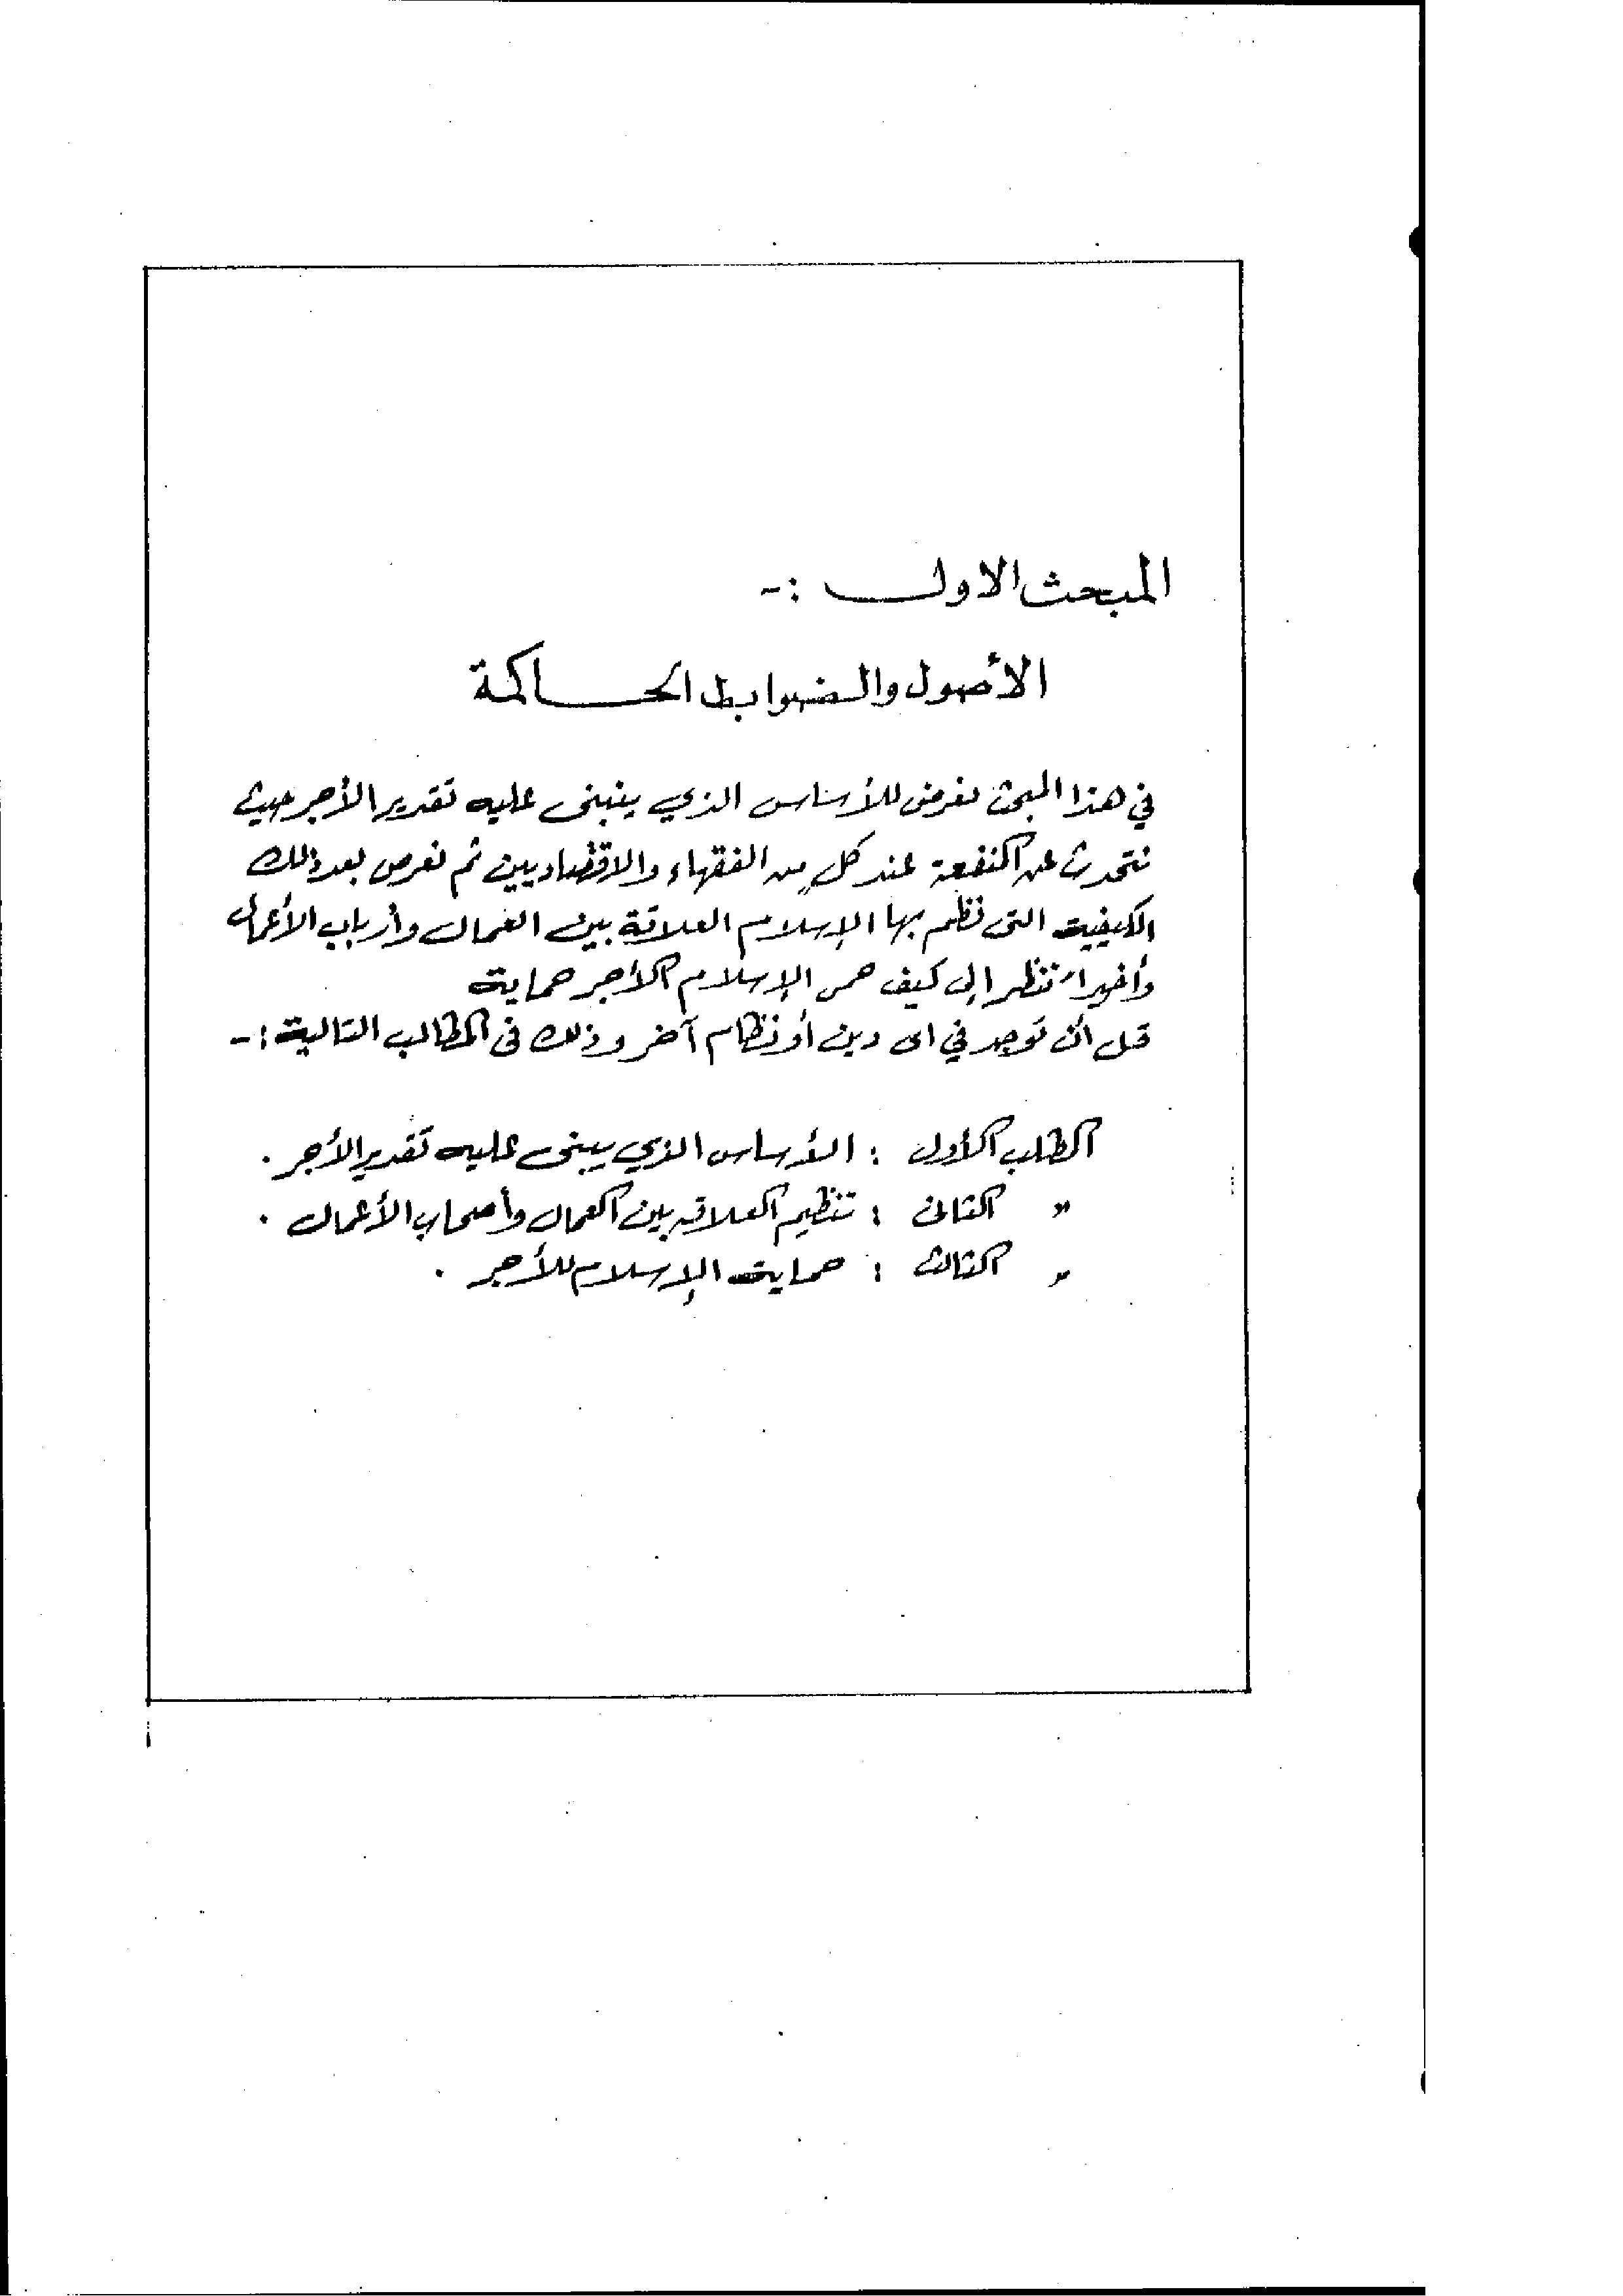 المبحث الاول :-
الأصول والضوابط الحاكمة
في هذا المبحث نعرض للأساس الذي ينبنى عليه تقدير الأجر حيث
نتحدث عن المنفعة عند كلٍ من الفقهاء والاقتصاديين ثم نعرض بعد ذلك
الكيفية التى نظم بها الإسلام العلاقة بين العمال وأرباب الأعمال
وأخيراً ننظر إلى كيف حمى الإسلام الأجر حماية
قل أن توجد في اى دين أو نظام آخر وذلك فى المطالب التالية :-
المطلب الأول : الأساس الذي يبنى عليه تقدير الأجر .
" الثانى : تنظيم العلاقه بين العمال وأصحاب الأعمال .
" الثالث : حماية الإسلام للأجر .